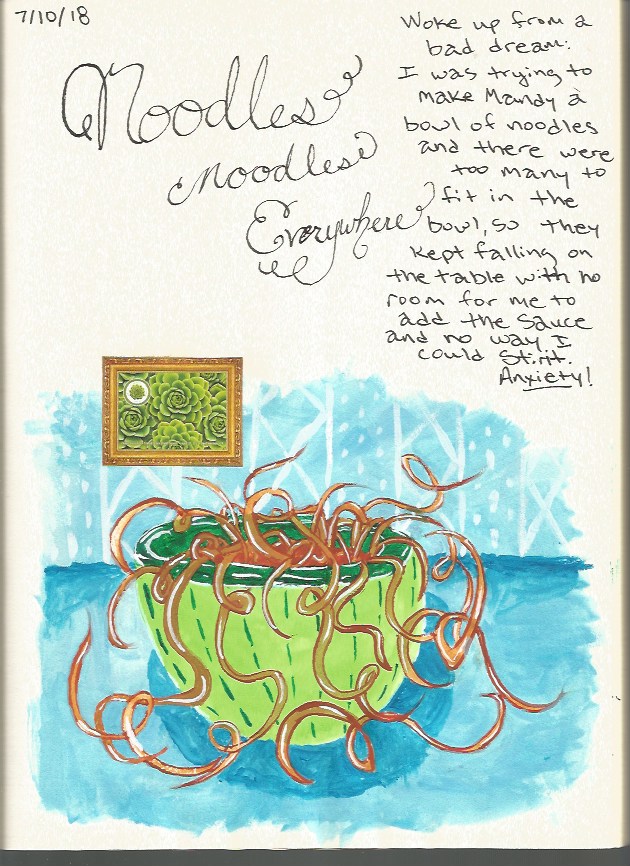 7/10/18
Noodles
Noodles
Everywhere
Woke up from a
bad dream:
I was trying to
make Mandy a
bowl of noodles
and there were
too many to
fit in the
bowl, so they
kept falling on
the table with no
room for me to
add the sauce
and no way I
could stir it.
Anxiety!